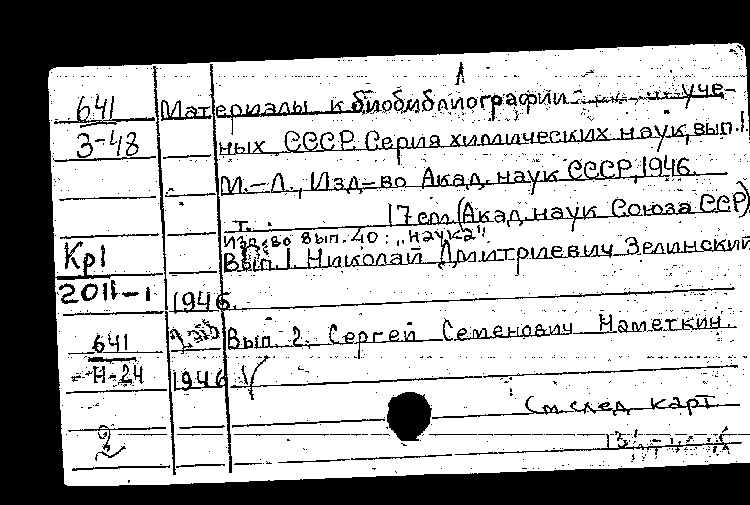 641 Материалы к биобиблиографии уче-
З-48 ных СССР. Серия химических наук, вып. 1
М.–Л., Изд–во Акад. наук СССР, 1946.
т. 17 см. (Акад. наук Союза ССР)
Изд-во вып. 40: „Наука".
Кр1 Вып. 1. Николай Дмитриевич Зелинский
2011-1 1946.
641 Вып. 2. Сергей Семенович Наметкин.
Н-24 1946 V
См. след. карт.
2